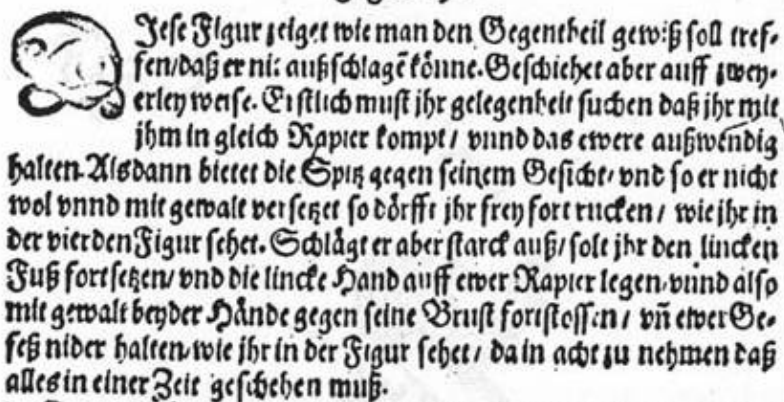 DIese Figur zeiget wie man den Gegentheil gewiß soll tref-
fen/daß er nit außschlagẽ könne. Geschiehet aber auff zwey-
erley weise. Erstlich must jhr gelegenheit suchen daß jhr mit
jhm in gleich Rapier kompt / vnnd das ewere außwendig
halten. Alsdann bietet die Spitz gegen seinem Gesicht/ vnd so er nicht
wol vnnd mit gewalt versetzet so dörfft jhr frey fort rucken / wie jhr in
der vierden Figur sehet. Schlägt er aber starck auß/ solt jhr den lincken
Fuß fortsetzen/ vnd die lincke Hand auff ewer Rapier legen/ vnnd also
mit gewalt beyder Hände gegen seine Brust fortstossen / vñ ewer Ge-
feß nider halten/ wie jhr in der Figur sehet / da in acht zu nehmen daß
alles in einer Zeit geschehen muß.